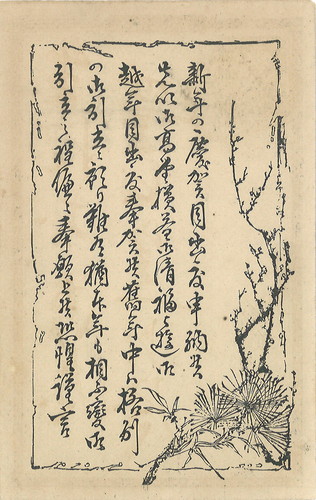 新年の慶賀目出度申納候
先以御高堂揃益御清福被遊御
越年目出度奉賀候舊年中ハ格別
の御引立を蒙り難有猶本年も相不変御
引立之程偏ニ奉願上候恐惶謹言